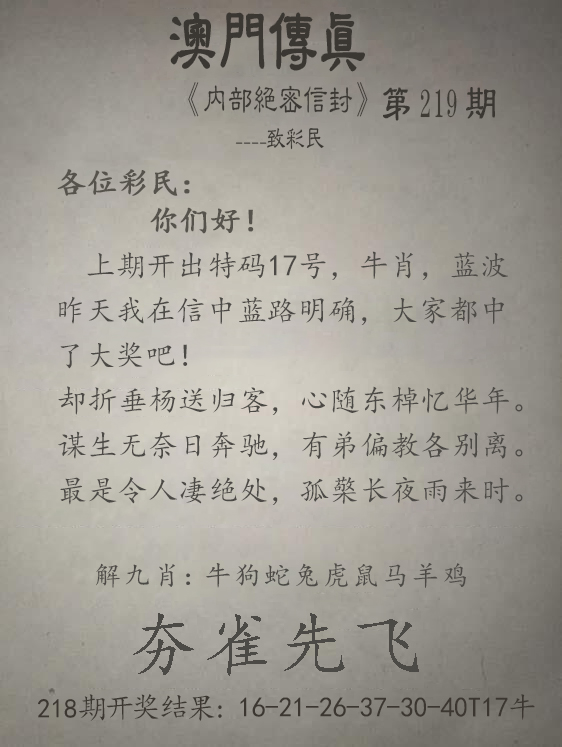 澳門傳眞
《内部絕密信封》第219期
----致彩民
各位彩民：
你们好！
上期开出特码17号，牛肖，蓝波
昨天我在信中蓝路明确，大家都中
了大奖吧！
却折垂杨送归客，心随东棹忆华年。
谋生无奈日奔驰，有弟偏教各别离。
最是令人凄绝处，孤檠长夜雨来时。
解九肖：牛狗蛇兔虎鼠马羊鸡
夯雀先飞
218期开奖结果：16-21-26-37-30-40T17牛